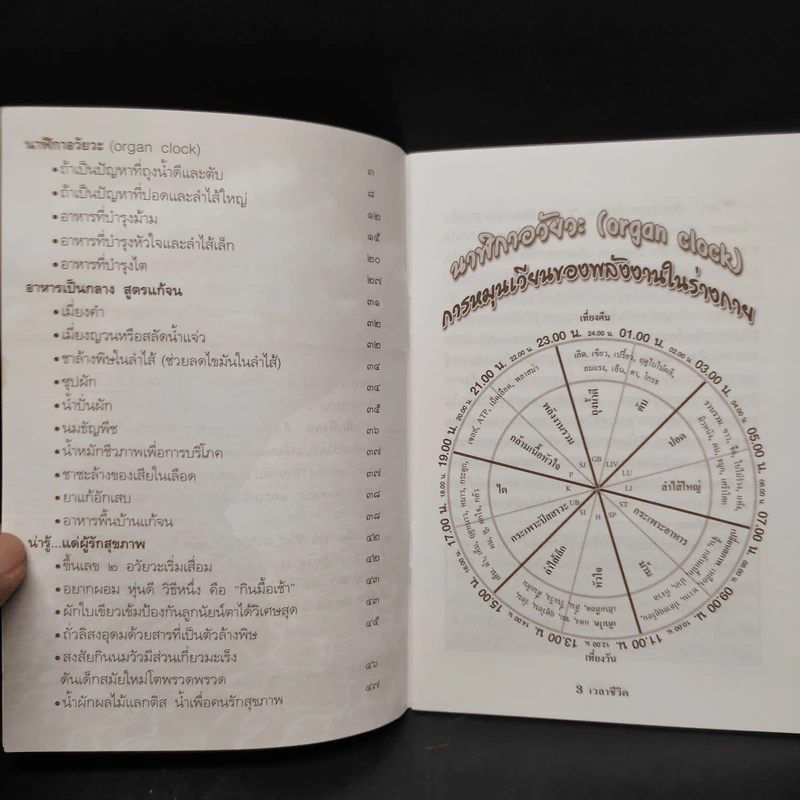 นาฬิกาอวัยวะ (organ clock)
•ถ้าเป็นปัญหาที่ถุงน้ำดีและตับ ๓
•ถ้าเป็นปัญหาที่ปอดและลำไส้ใหญ่ ๘
•อาหารที่บำรุงม้าม ๑๒
•อาหารที่บำรุงหัวใจและลำไส้เล็ก ๑๕
•อาหารที่บำรุงไต ๒๐
อาหารเป็นกลาง สูตรแก้จน ๒๗
•เมี่ยงคำ ๓๑
•เมี่ยงญวนหรือสลัดน้ำแจ่ว ๓๒
•ชาล้างพิษในลำไส้ (ช่วยลดไขมันในลำไส้) ๓๒
•ซุปผัก ๓๔
•น้ำปั่นผัก ๓๔
•นมธัญพืช ๓๕
•น้ำหมักชีวภาพเพื่อการบริโภค ๓๖
•ชาชะล้างของเสียในเลือด ๓๗
•ยาแก้อักเสบ ๓๗
•อาหารพื้นบ้านแก้จน ๓๘
น่ารู้...แด่ผู้รักสุขภาพ ๓๘
•ขึ้นเลข ๒ อวัยวะเริ่มเสื่อม ๔๒
•อยากผอม หุ่นดี วิธีหนึ่ง คือ "กินมื้อเช้า" ๔๒
•ผักใบเขียวเข้มป้องกันลูกนัยน์ตาได้วิเศษสุด ๔๓
•ถั่วลิสงอุดมด้วยสารที่เป็นตัวล้างพิษ ๔๓
•สงสัยกินนมวัวมีส่วนเกี่ยวมะเร็ง ๔๕
ดันเด็กสมัยใหม่โตพรวดพรวด
•น้ำผักผลไม้แลกติส น้ำเพื่อคนรักสุขภาพ ๔๖
๔๗
นาฬิกาอวัยวะ (organ clock)
การหมุนเวียนของพลังงานในร่างกาย
เที่ยงคืน
23.00 น. 24.00 น. 01.00 น. 02.00 น. 03.00 น. 04.00 น. 05.00 น. 07.00 น. 09.00 น. 10.00 น. 11.00 น. 13.00 น. 15.00 น. 16.00 น. 17.00 น. 18.00 น. 19.00 น. 20.00 น. 21.00 น. 22.00 น.
ถุงน้ำดี
ตับ
ปอด
ลำไส้ใหญ่
กระเพาะอาหาร
ม้าม
หัวใจ
ลำไส้เล็ก
กระเพาะปัสสาวะ
ไต
กล้ามเนื้อหัวใจ
พลังงานรวม
GB LIV LU LI ST SP H SI UB K P SJ
เที่ยงวัน
3 เวลาชีวิต